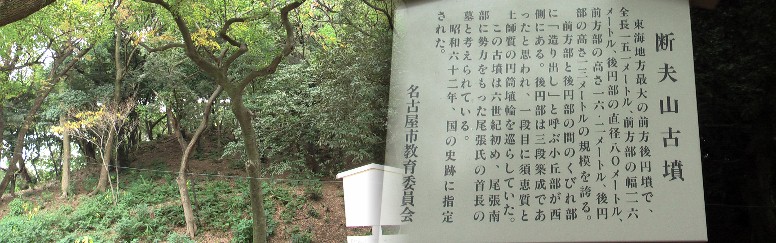 断夫山古墳
東海地方最大の前方後円墳で、
全長一五一メートル、前方部の幅一一六
メートル、後円部の直径八〇メートル、
前方部の高さ一六.二メートル、後円
部の高さ一三メートルの規模を誇る。
前方部と後円部の間のくびれ部
に「造り出し」と呼ぶ小丘部が西
側にある。後円部は三段築成であ
ったと思われ、一段目に須恵質と
土師質の円筒埴輪を巡らしていた。
この古墳は六世紀初め、尾張南
部に勢力をもった尾張氏の首長の
墓と考えられている。
昭和六十二年、国の史跡に指定
された。
名古屋市教育委員会